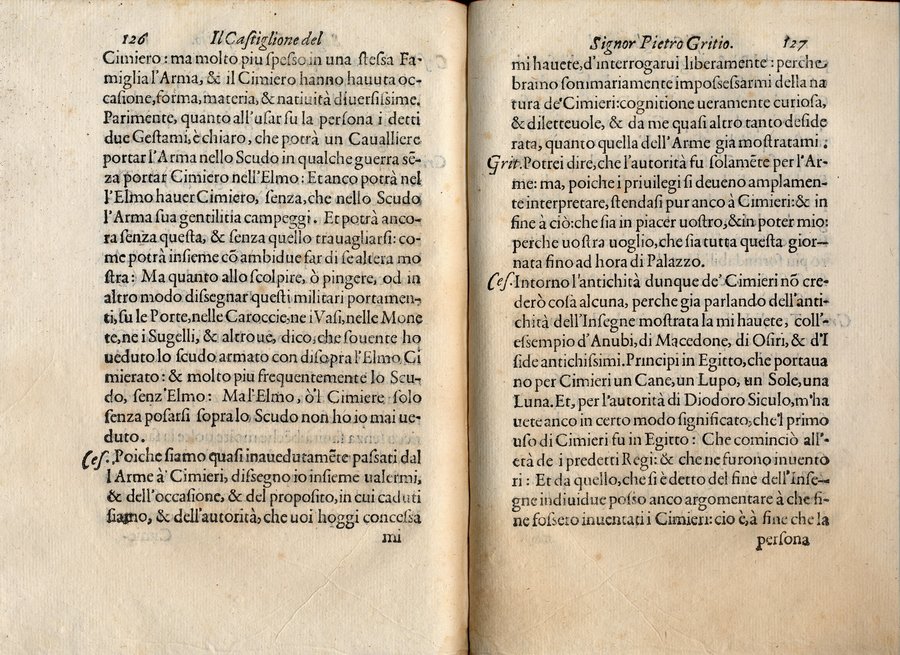 126 Il Castiglione del
Cimiero : ma molto piu spesso in una stessa Fa-
miglia l'Arma, & il Cimiero hanno hauuta oc-
casione, forma, materia, & natiuità diuersissime.
Parimente, quanto all'usar su la persona i detti
due Gestami, è chiaro, che potrà un Caualliere
portar l'Arma nello Scudo in qualche guerra sē-
za portar Cimiero nell'Elmo : Et anco potrà nel
l'Elmo hauer Cimiero, senza, che nello Scudo
l'Arma sua gentilitia campeggi. Et potrà anco-
ra senza questa, & senza quello trauagliarsi: co-
me potrà insieme cō ambidue far di se altera mo
stra : Ma quanto allo scolpire, ò pingere, od in
altro modo dissegnar questi militari portamen-
ti, su le Porte, nelle Caroccie, ne i Vasi, nelle Mone
te, ne i Sugelli, & altroue, dico, che souente ho
ueduto lo scudo armato con disopra l'Elmo Ci
mierato : & molto piu frequentemente lo Scu-
do, senz'Elmo : Mal'Elmo, ò'l Cimiere solo
senza posarsi sopra lo Scudo non ho io mai ue-
duto.
Ces. Poiche siamo quasi inauedutamēte passati dal
l'Arme à Cimieri, dissegno io insieme ualermi,
& dell'occasione, & del proposito, in cui caduti
siamo, & dell'autorità, che uoi hoggi concessa
mi
Signor Pietro Gritio. 127
mi hauete, d'interrogarui liberamente : perche
bramo sommariamente impossessarmi della na
tura de' Cimieri: cognitione ueramente curiosa,
& diletteuole, & da me quasi altro tanto deside
rata, quanto quella dell'Arme già mostratami.
Grit. Potrei dire, che l'autorità fu solamēte per l'Ar-
me: ma, poiche i priuilegi si deueno amplamen-
te interpretare, stendasi pur anco à Cimieri: & in
fine à ciò: che sia in piacer uostro, & in poter mio:
perche uostra uoglio, che sia tutta questa gior-
nata fino ad hora di Palazzo.
Ces. Intorno l'antichità dunque de' Cimieri nō cre-
derò cosa alcuna, perche già parlando dell'anti-
chità dell'Insegne mostrata la mi hauete, coll'-
essempio d'Anubi, di Macedone, di Osiri, & d'I
side antichissimi. Principi in Egitto, che portaua
no per Cimieri un Cane, un Lupo, un Sole, una
Luna. Et, per l'autorità di Diodoro Siculo, m'ha
uete anco in certo modo significato, che'l primo
uso di Cimieri fu in Egitto : Che cominciò all'-
età de i predetti Regi: & che ne furono inuento
ri : Et da quello, che si è detto del fine dell'Inse-
gne indiuidue posso anco argomentare à che fi-
ne fossero inuentati i Cimieri: cio è, à fine che la
persona